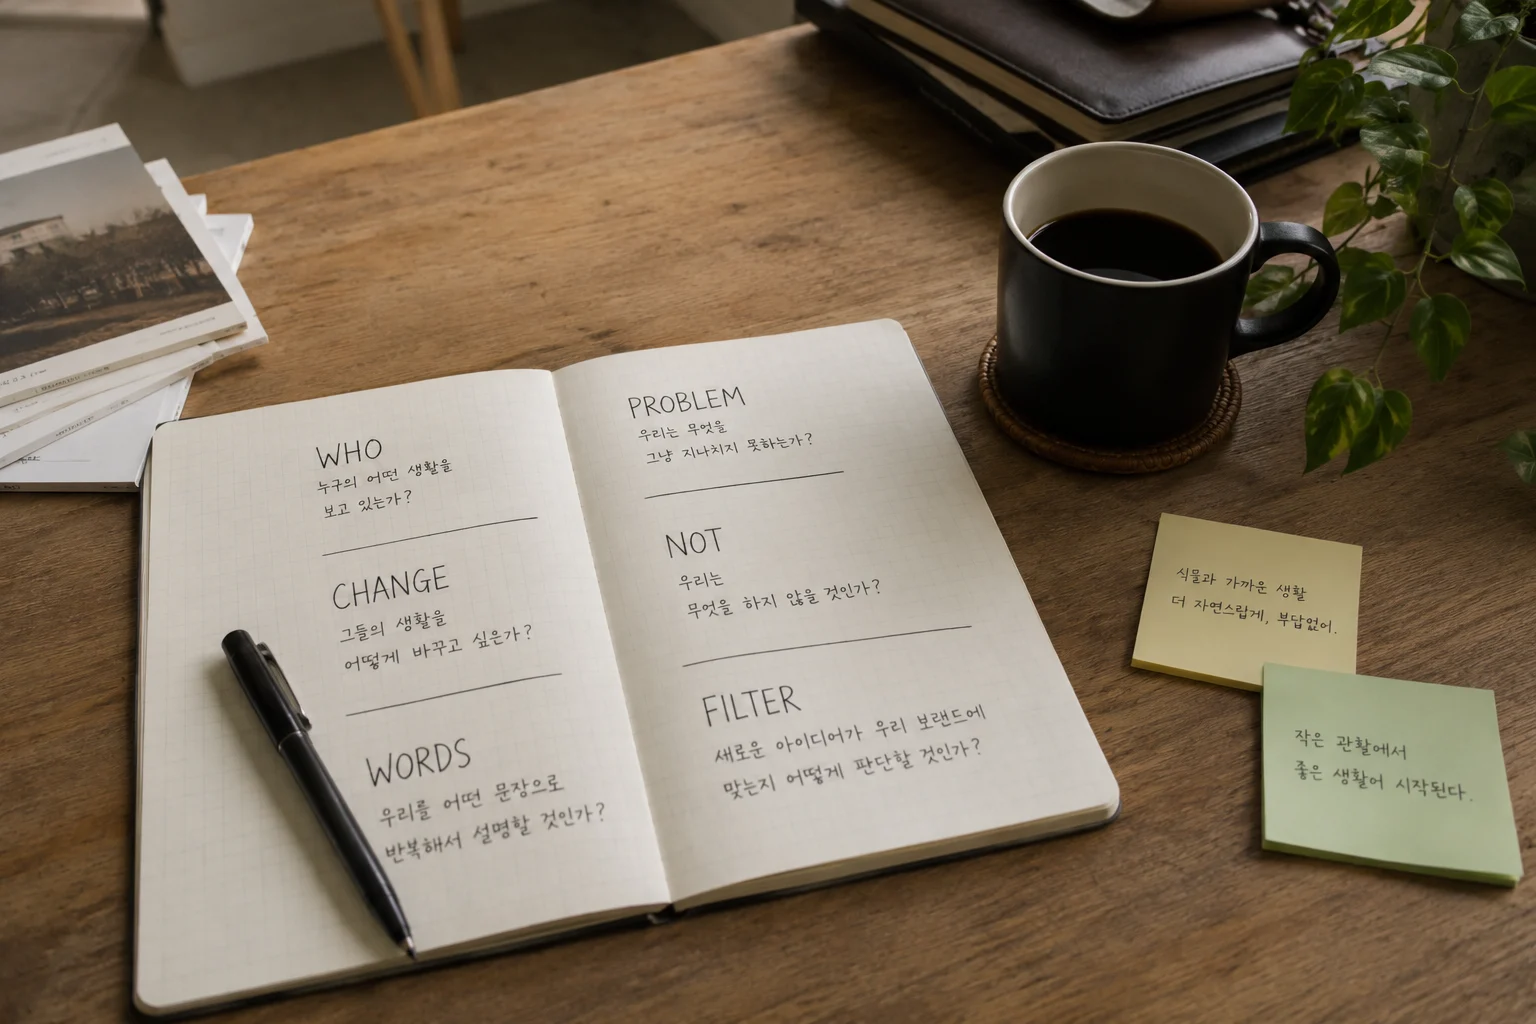 WHO
누구의 어떤 생활을
보고 있는가?
CHANGE
그들의 생활을
어떻게 바꾸고 싶은가?
WORDS
우리를 어떤 문장으로
반복해서 설명할 것인가?
PROBLEM
우리는 무엇을
그냥 지나치지 못하는가?
NOT
우리는
무엇을 하지 않을 것인가?
FILTER
새로운 아이디어가 우리 보랜드에
맞는지 어떻게 판단할 것인가?
식물과 가까운 생활
더 자연스럽게, 부담없이.
작은 관찰에서
좋은 생활이 시작된다.